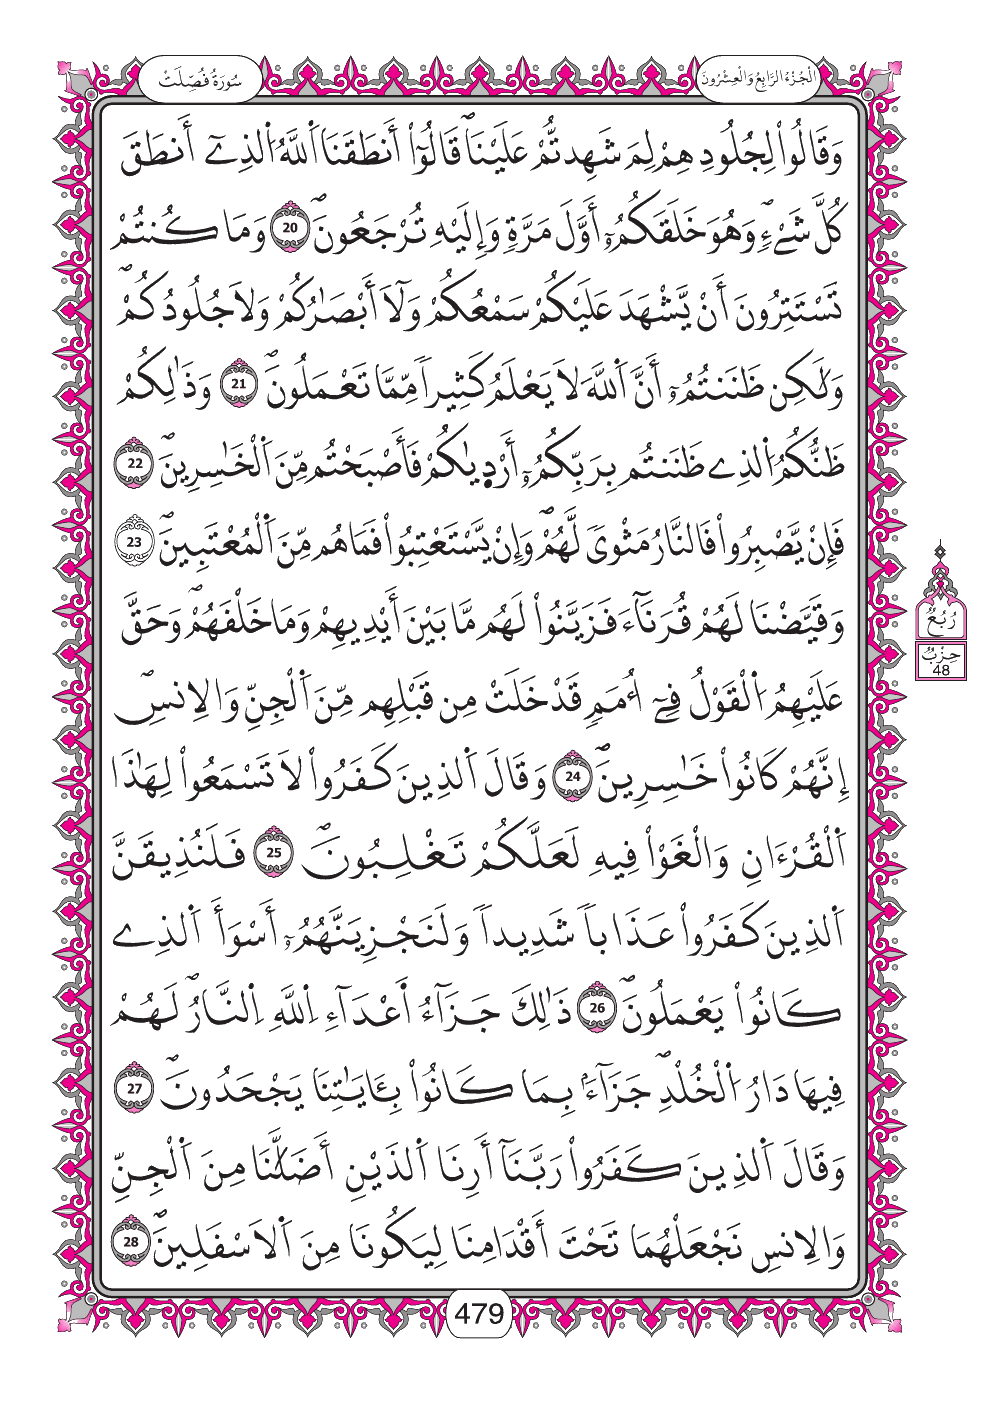 سُورَةُ فُصِّلَتْ
الْجُزْءُ الرَّابِعُ وَالْعِشْرُونَ
وَقَالُواْ لِجُلُودِهِمْ لِمَ شَهِدتُّمْ عَلَيْنَاۖ قَالُوٓاْ أَنطَقَنَا اَ۬للَّهُ اُ۬لذِےٓ أَنطَقَ
كُلَّ شَےْءٖۖ وَهُوَ خَلَقَكُمُۥٓ أَوَّلَ مَرَّةٖ وَإِلَيْهِ تُرْجَعُونَۖ 20 وَمَا كُنتُمْ
تَسْتَتِرُونَ أَنْ يَّشْهَدَ عَلَيْكُمْ سَمْعُكُمْ وَلَآ أَبْصَٰرُكُمْ وَلَا جُلُودُكُمْۖ
وَلَٰكِن ظَنَنتُمُۥٓ أَنَّ اَ۬للَّهَ لَا يَعْلَمُ كَثِيراٗ مِّمَّا تَعْمَلُونَۖ 21 وَذَٰلِكُمْ
ظَنُّكُمُ اُ۬لذِے ظَنَنتُم بِرَبِّكُمُۥٓ أَرْدِيٰكُمْ فَأَصْبَحْتُم مِّنَ اَ۬لْخَٰسِرِينَۖ 22
فَإِنْ يَّصْبِرُواْ فَالنَّارُ مَثْويٗ لَّهُمْۖ وَإِنْ يَّسْتَعْتِبُواْ فَمَا هُم مِّنَ اَ۬لْمُعْتَبِينَۖ 23
وَقَيَّضْنَا لَهُمْ قُرَنَآءَ فَزَيَّنُواْ لَهُم مَّا بَيْنَ أَيْدِيهِمْ وَمَا خَلْفَهُمْۖ وَحَقَّ
عَلَيْهِمُ اُ۬لْقَوْلُ فِےٓ أُمَمٖ قَدْ خَلَتْ مِن قَبْلِهِم مِّنَ اَ۬لْجِنِّ وَالِانسِۖ
إِنَّهُمْ كَانُواْ خَٰسِرِينَۖ 24 وَقَالَ اَ۬لذِينَ كَفَرُواْ لَا تَسْمَعُواْ لِهَٰذَا
اَ۬لْقُرْءَانِ وَالْغَوْاْ فِيهِ لَعَلَّكُمْ تَغْلِبُونَۖ 25 فَلَنُذِيقَنَّ
اَ۬لذِينَ كَفَرُواْ عَذَاباٗ شَدِيداٗ وَلَنَجْزِيَنَّهُمُۥٓ أَسْوَأَ اَ۬لذِے
كَانُواْ يَعْمَلُونَۖ 26 ذَٰلِكَ جَزَآءُ اَعْدَآءِ اِ۬للَّهِ اِ۬لنَّارُۖ لَهُمْ
فِيهَا دَارُ اُ۬لْخُلْدِۖ جَزَآءَۢ بِمَا كَانُواْ بِـَٔايَٰتِنَا يَجْحَدُونَۖ 27
وَقَالَ اَ۬لذِينَ كَفَرُواْ رَبَّنَآ أَرِنَا اَ۬لذَيْنِ أَضَلَّٰنَا مِنَ اَ۬لْجِنِّ
وَالِانسِ نَجْعَلْهُمَا تَحْتَ أَقْدَامِنَا لِيَكُونَا مِنَ اَ۬لَاسْفَلِينَۖ 28
رُبُعُ
حِزْبُ
48
479